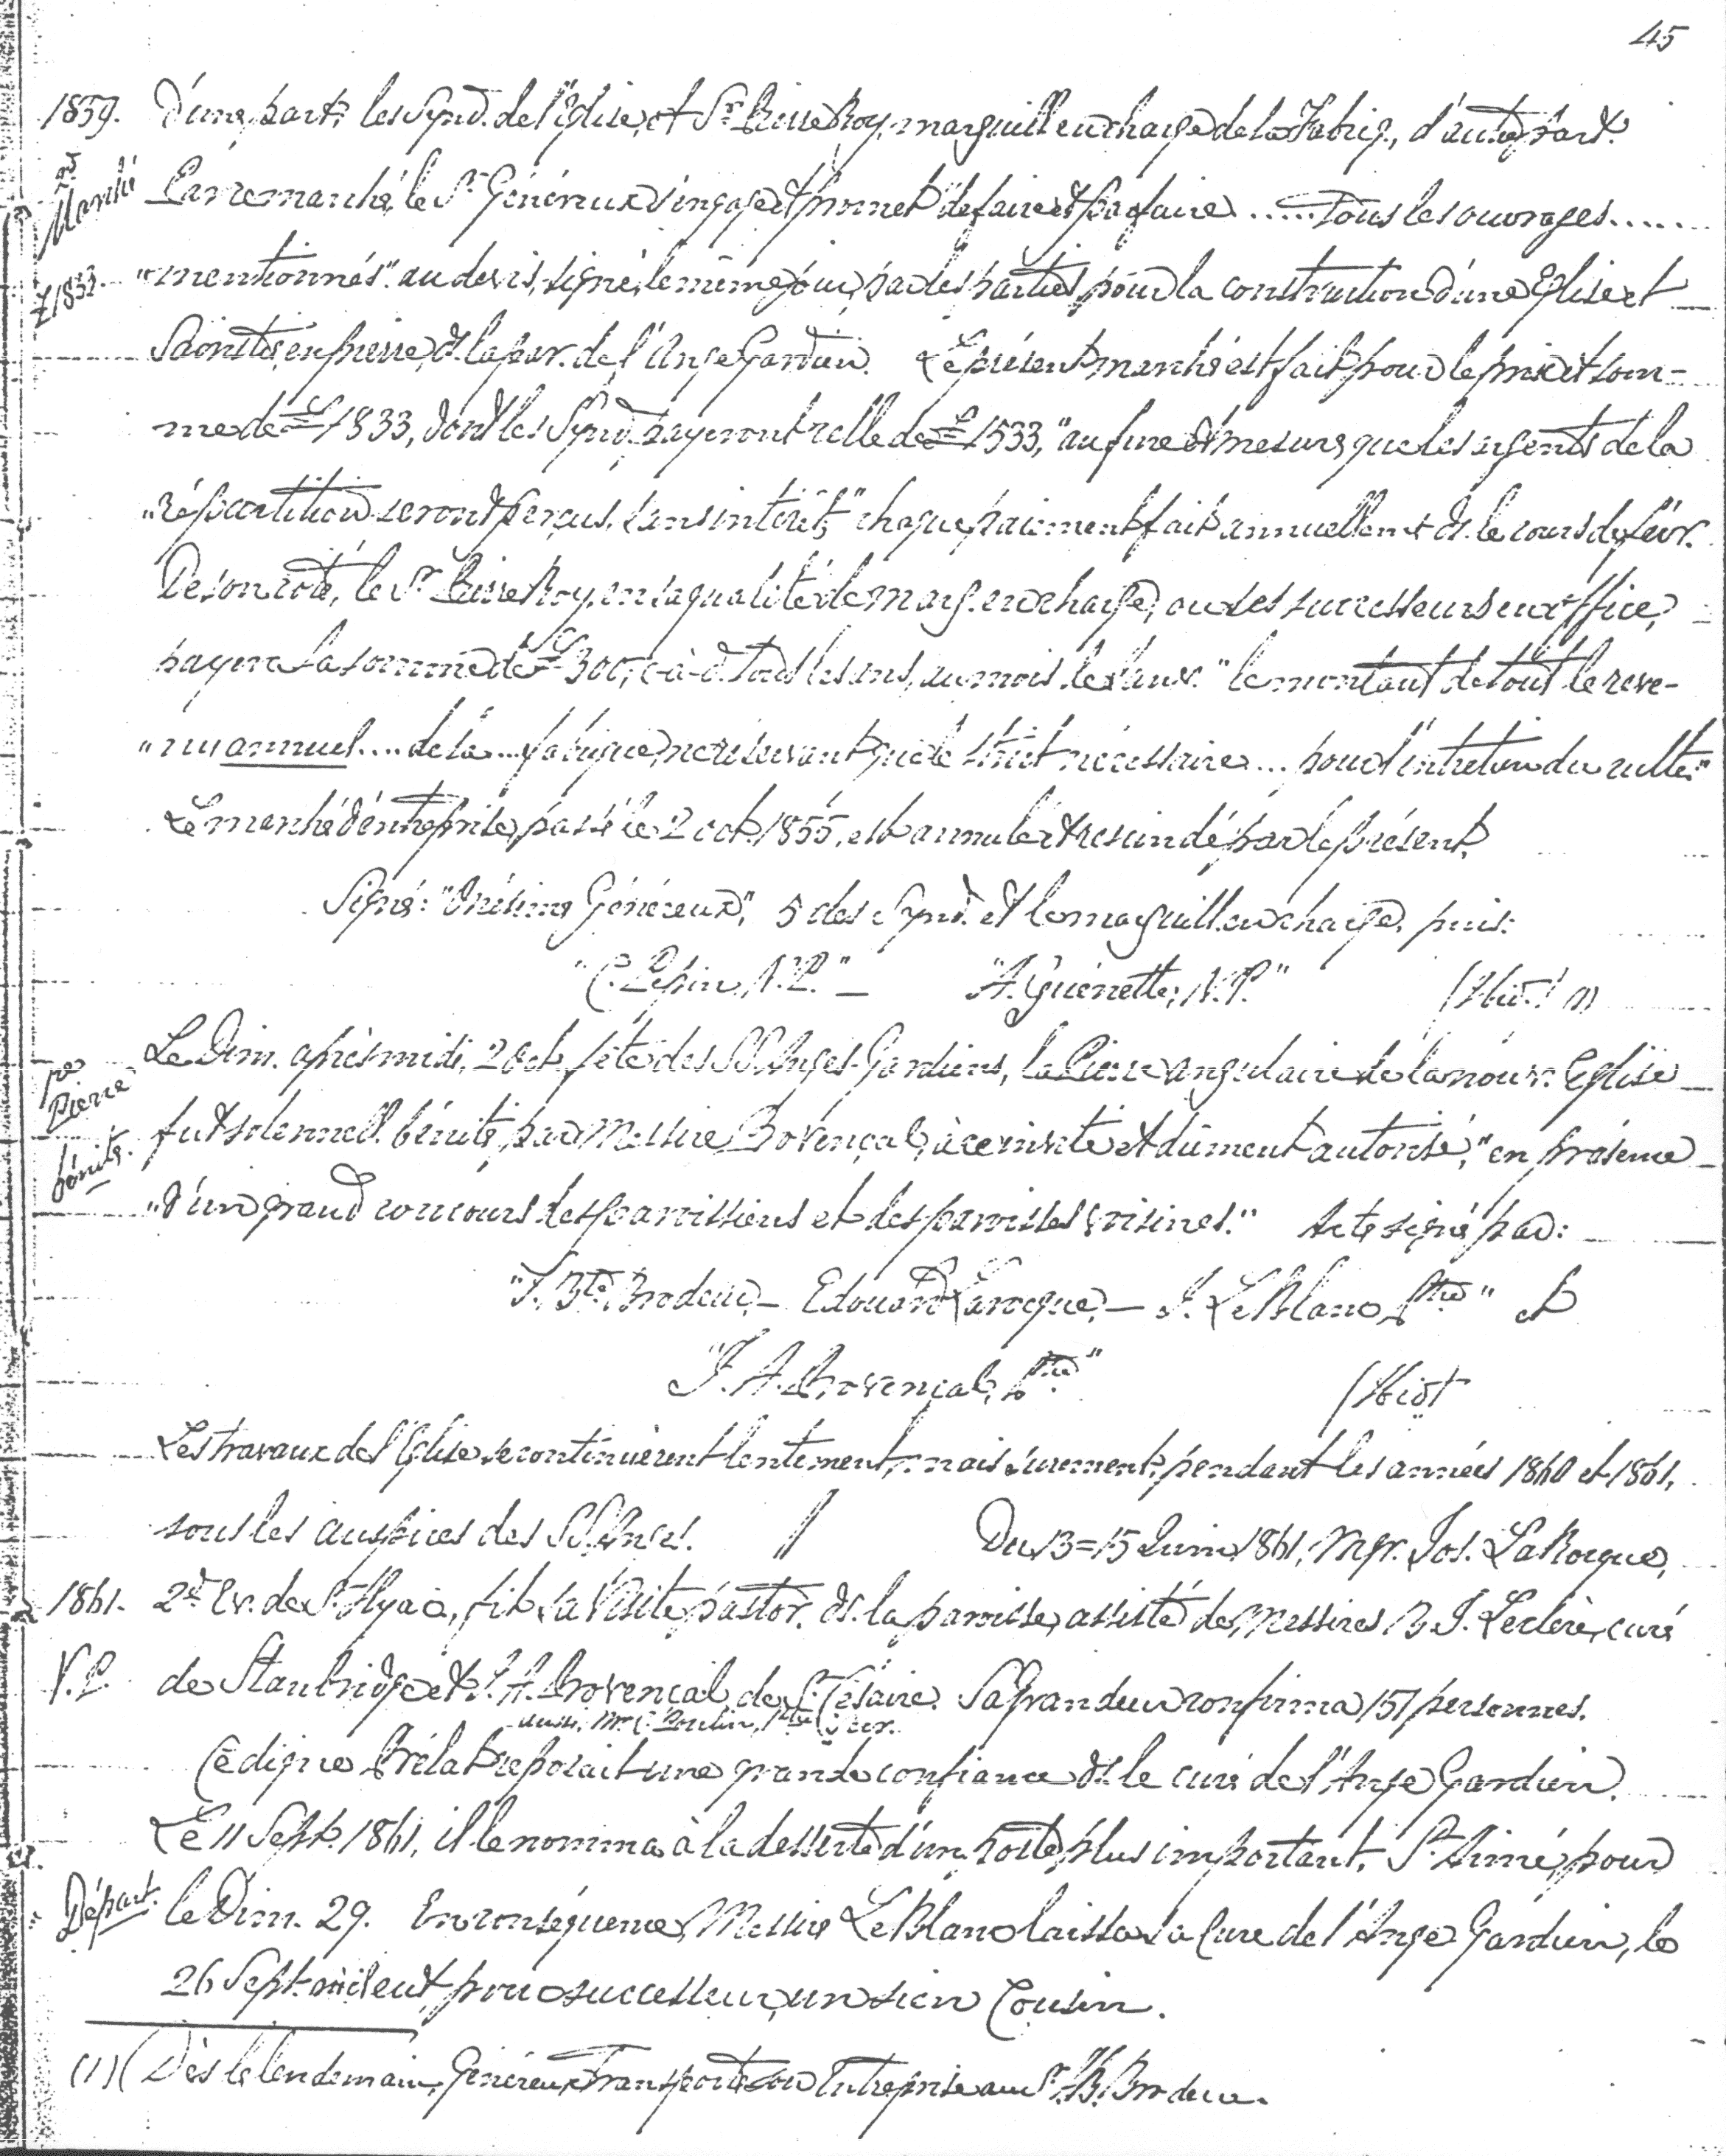 45
1859. d'une part; les Synd. de l'Eglise, et Sr. Pierre Roy, marguill. en charge de la Fabriq., d'autre part.
nd Marché Par ce marché, le Sr. Généreux s'engage et promet "de faire et parfaire ..... tous les ouvrages......
£1833. "mentionnés" au devis, signé, le même jour, par les parties, pour la construction d'une Eglise et
Sacristie, en pierre, ds. la par. de l'Ange Gardien. Le présent marché est fait pour le prix et som-
me de £1833, dont les Synd. payeront celle de £1533, "au fur et mesure que les argents de la
"répartition seront perçus, sans intérêt;" chaque paiement fait annuellemt. ds. le cours de févr.
De son coté, le Sr. Pierre Roy, en sa qualité de marg. en charge, ou ses successeurs en office,
payera la somme de £300, c-à-d. tous les ans, au mois de Janv. "le montant de tout le reve-
"nu annuel.... de la... fabrique, ne réservant que le strict nécessaire... pour l'entretien du culte."
Le marché d'entreprise, passé le 2 oct. 1855, est annulé et rescindé par le présent.
Signé: "Onésime Généreux", 5 des Synd. et le marguill. en charge, puis:
"C. Lepin, N.P." — "A. Guénette, N.P." (1)
pre Pierre Le Dim. après midi, 2 Oct. fête des SS. Anges-Gardiens, la Pierre angulaire de la nouv. Eglise
bénite. fut solennell. bénite, par Messire Provençal, à ce invité et dûment autorisé, "en présence
"d'un grand concours des paroissiens et des paroisses voisines." Acte signé par:
"J. Bte. Brodeur, — Edouard Larocque, — J. LeBlanc, Ptre" et
"J. A. Provençal, Ptre"
Les travaux de l'Eglise se continuèrent lentement, mais surement, pendant les années 1860 et 1861,
sous les auspices des SS. Anges. // Du 13=15 Juin 1861, Mgr. Jos. LaRocque,
1861. 2d. Ev. de St. Hyac., fit sa Visite pastor. ds. la paroisse, assisté de Messires B. J. Leclère, curé
V.P. de Stanbridge et J. A. Provençal, de St. Césaire. Sa Grandeur confirma 157 personnes.
aussi, Mr. C. Poulin, Ptre Secr.
Ce digne Prélat reposait une grande confiance ds. le curé de l'Ange Gardien.
Le 11 Sept. 1861, il le nomma à la desserte d'un poste plus important, St. Aimé, pour
Départ. le Dim. 29. En conséquence, Messire LeBlanc laissa sa Cure de l'Ange Gardien, le
26 Sept. eut pour successeur, un sien Cousin.
(1) (Dès le lendemain, Généreux transporte son Entreprise au Sr. J.B. Brodeur.